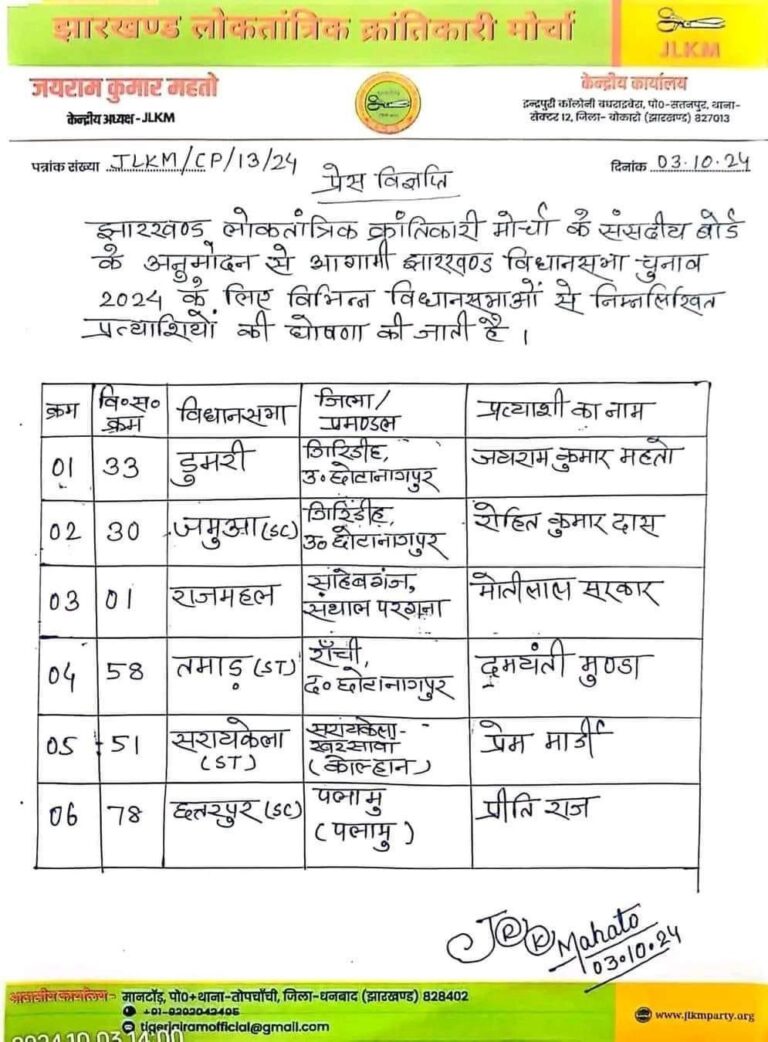 झारखण्ड लोकतांत्रिक क्रांतिकारी मोर्चा
JLKM
जयराम कुमार महतो
केन्द्रीय अध्यक्ष-JLKM
केन्द्रीय कार्यालय
इन्द्रपुरी कॉलोनी चधराबेरा, पो०-सतनपुर, थाना-
सेक्टर 12, जिला- बोकारो (झारखण्ड) 827013
पत्रांक संख्या JLKM/CP/13/24
दिनांक 03.10.24
प्रेस विज्ञप्ति
झारखण्ड लोकतांत्रिक क्रांतिकारी मोर्चा के संसदीय बोर्ड
के अनुमोदन से आगामी झारखण्ड विधानसभा चुनाव
2024 के लिए विभिन्न विधानसभाओं से निम्नलिखित
प्रत्याशियों की घोषणा की जाती है ।
क्रम वि०स० क्रम विधानसभा जिला/ प्रमण्डल प्रत्याशी का नाम
01 33 डुमरी गिरिडीह, उ० छोटानागपुर जयराम कुमार महतो
02 30 जमुआ (SC) गिरिडीह, उ० छोटानागपुर रोहित कुमार दास
03 01 राजमहल साहेबगंज, संथाल परगना मोतीलाल सरकार
04 58 तमाड़ (ST) राँची, द० छोटानागपुर दमयंती मुण्डा
05 51 सरायकेला (ST) सरायकेला- खरसावा (कोल्हान) प्रेम मार्डी
06 78 छतरपुर (SC) पलामु (पलामु) प्रीति राज
JRK Mahato
03.10.24
मानटाँड़, पो०+थाना-तोपचाँची, जिला-धनबाद (झारखण्ड) 828402
+91-9202042495
tigerjairamofficial@gmail.com
www.jlkmparty.org
2024.10.03 14:00